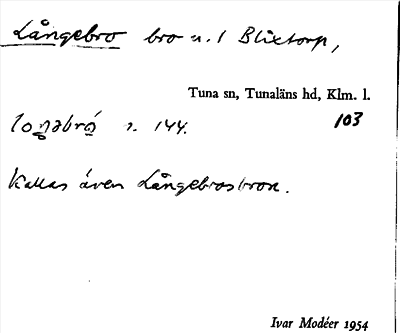 Långebro bro u. l Blixtorp,
Tuna sn, Tunaläns hd, Klm. l.
103
s. 144.
Kallas även Långebrosbron.
Ivar Modéer 1954